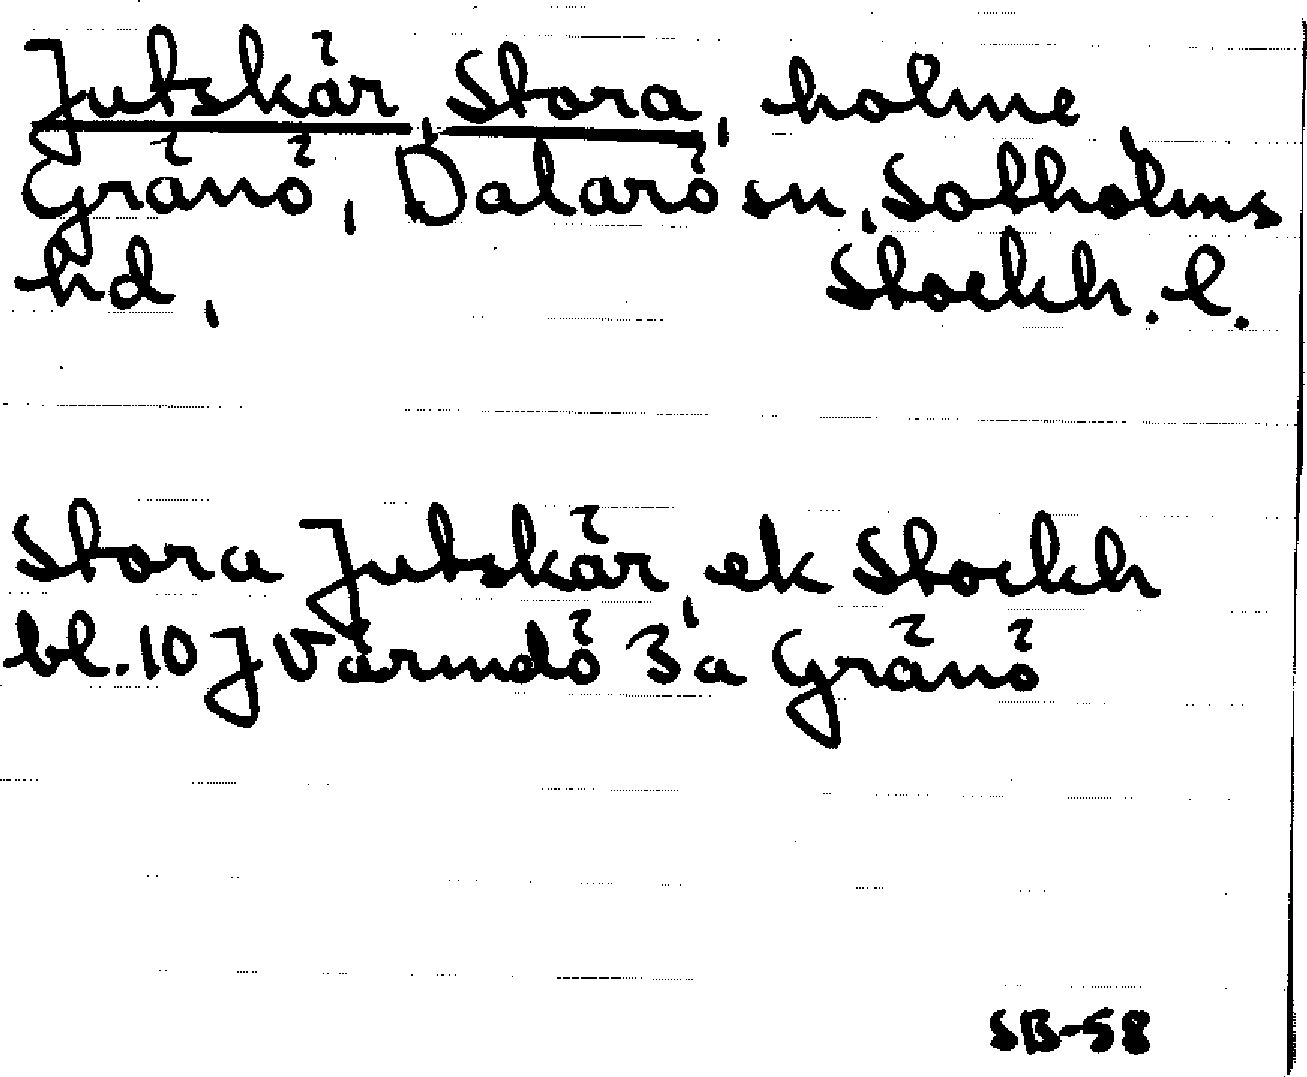 Jutskär, Stora, holme,
Gränö, Dalarö sn, Sotholms
hd, Stockh. l.
Stora Jutskär, ek Stockh
bl. 10 J Värmdö 3a Gränö
SB-58